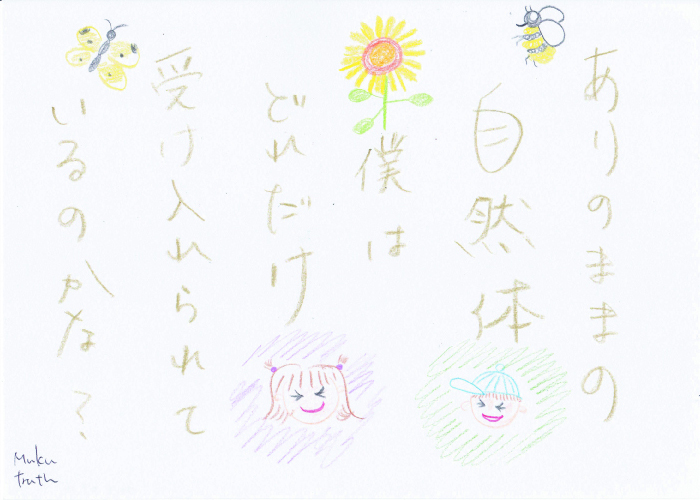 ありのままの
自然体
僕は
どれだけ
受け入れられて
いるのかな？
Muku
truth